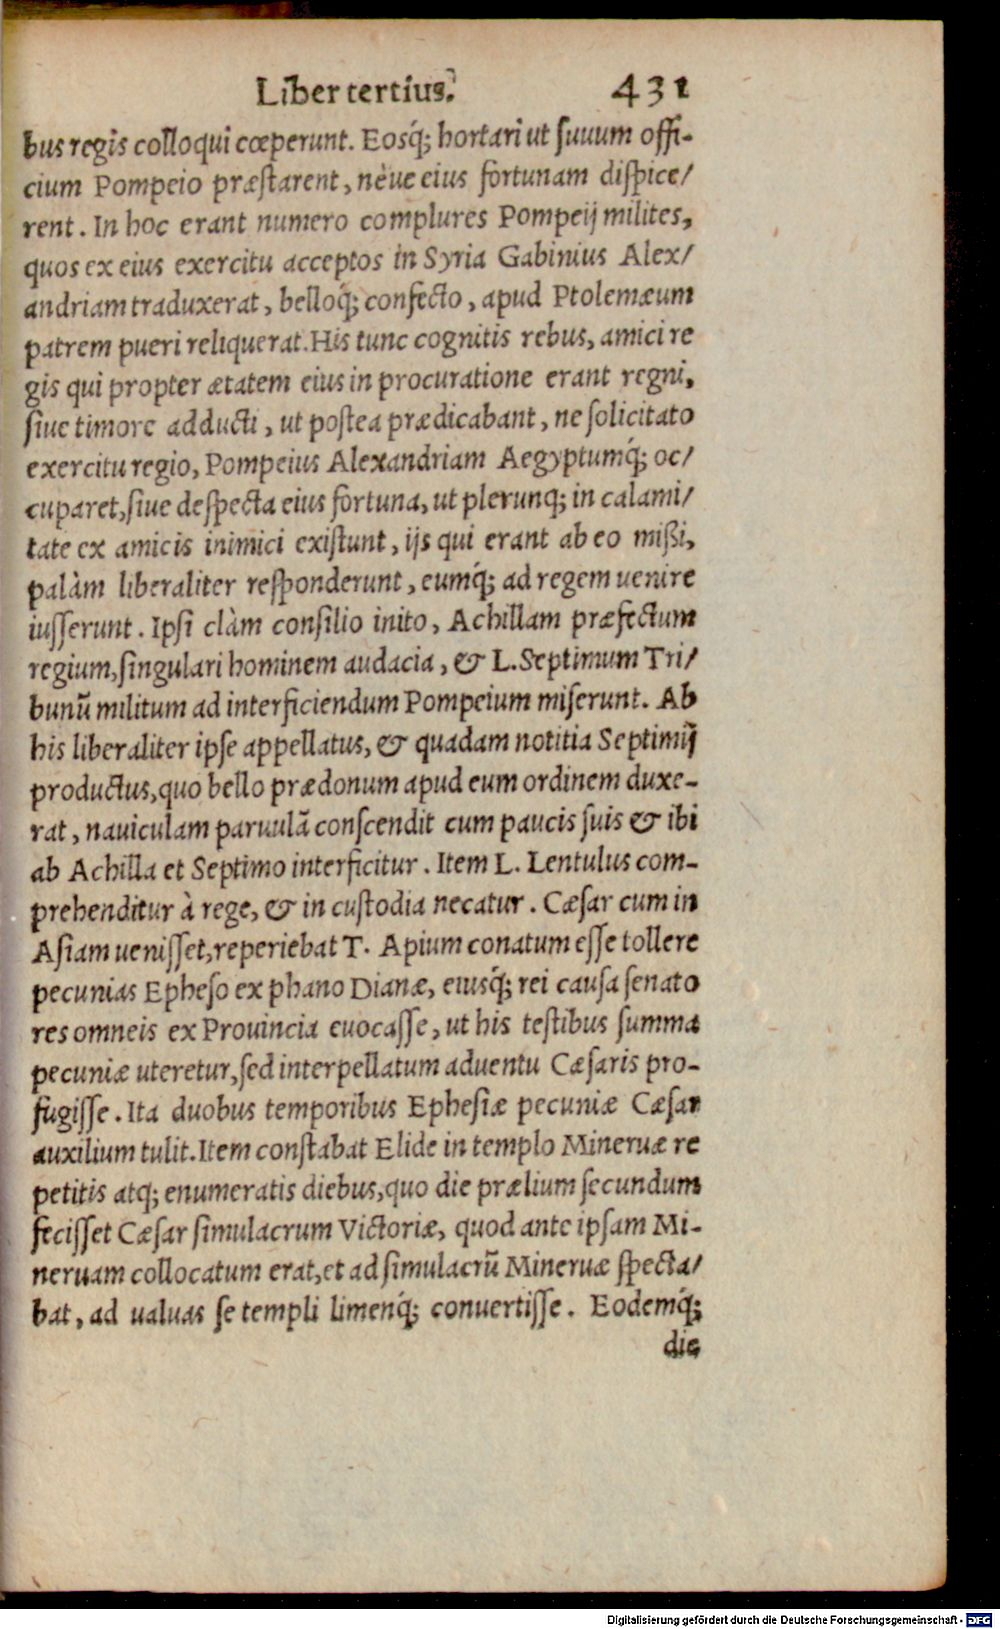 Liber tertius. 431
bus regis colloqui cœperunt. Eosq́; hortari ut suuum offi-
cium Pompeio præstarent, néue eius fortunam dispice/
rent. In hoc erant numero complures Pompeij milites,
quos ex eius exercitu acceptos in Syria Gabinius Alex/
andriam traduxerat, belloq́; confecto, apud Ptolemæum
patrem pueri reliquerat. His tunc cognitis rebus, amici re
gis qui propter ætatem eius in procuratione erant regni,
siue timore adducti, ut postea prædicabant, ne solicitato
exercitu regio, Pompeius Alexandriam Aegyptumq́; oc/
cuparet, siue despecta eius fortuna, ut plerunq; in calami/
tate ex amicis inimici existunt, ijs qui erant ab eo mißi,
palàm liberaliter responderunt, eumq́; ad regem uenire
iusserunt. Ipsi clàm consilio inito, Achillam præfectum
regium, singulari hominem audacia, & L. Septimum Tri/
bunũ militum ad interficiendum Pompeium miserunt. Ab
his liberaliter ipse appellatus, & quadam notitia Septimij
productus, quo bello prædonum apud eum ordinem duxe-
rat, nauiculam paruulã conscendit cum paucis suis & ibi
ab Achilla et Septimo interficitur. Item L. Lentulus com-
prehenditur à rege, & in custodia necatur. Cæsar cum in
Asiam uenisset, reperiebat T. Apium conatum esse tollere
pecunias Epheso ex phano Dianæ, eiusq́; rei causa senato
res omneis ex Prouincia euocasse, ut his testibus summa
pecuniæ uteretur, sed interpellatum aduentu Cæsaris pro-
fugisse. Ita duobus temporibus Ephesiæ pecuniæ Cæsar
auxilium tulit. Item constabat Elide in templo Mineruæ re
petitis atq; enumeratis diebus, quo die prælium secundum
fecisset Cæsar simulacrum Victoriæ, quod ante ipsam Mi-
neruam collocatum erat, et ad simulacrũ Mineruæ specta/
bat, ad ualuas se templi limenq́; conuertisse. Eodemq́;
die
Digitalisierung gefördert durch die Deutsche Forschungsgemeinschaft - DFG